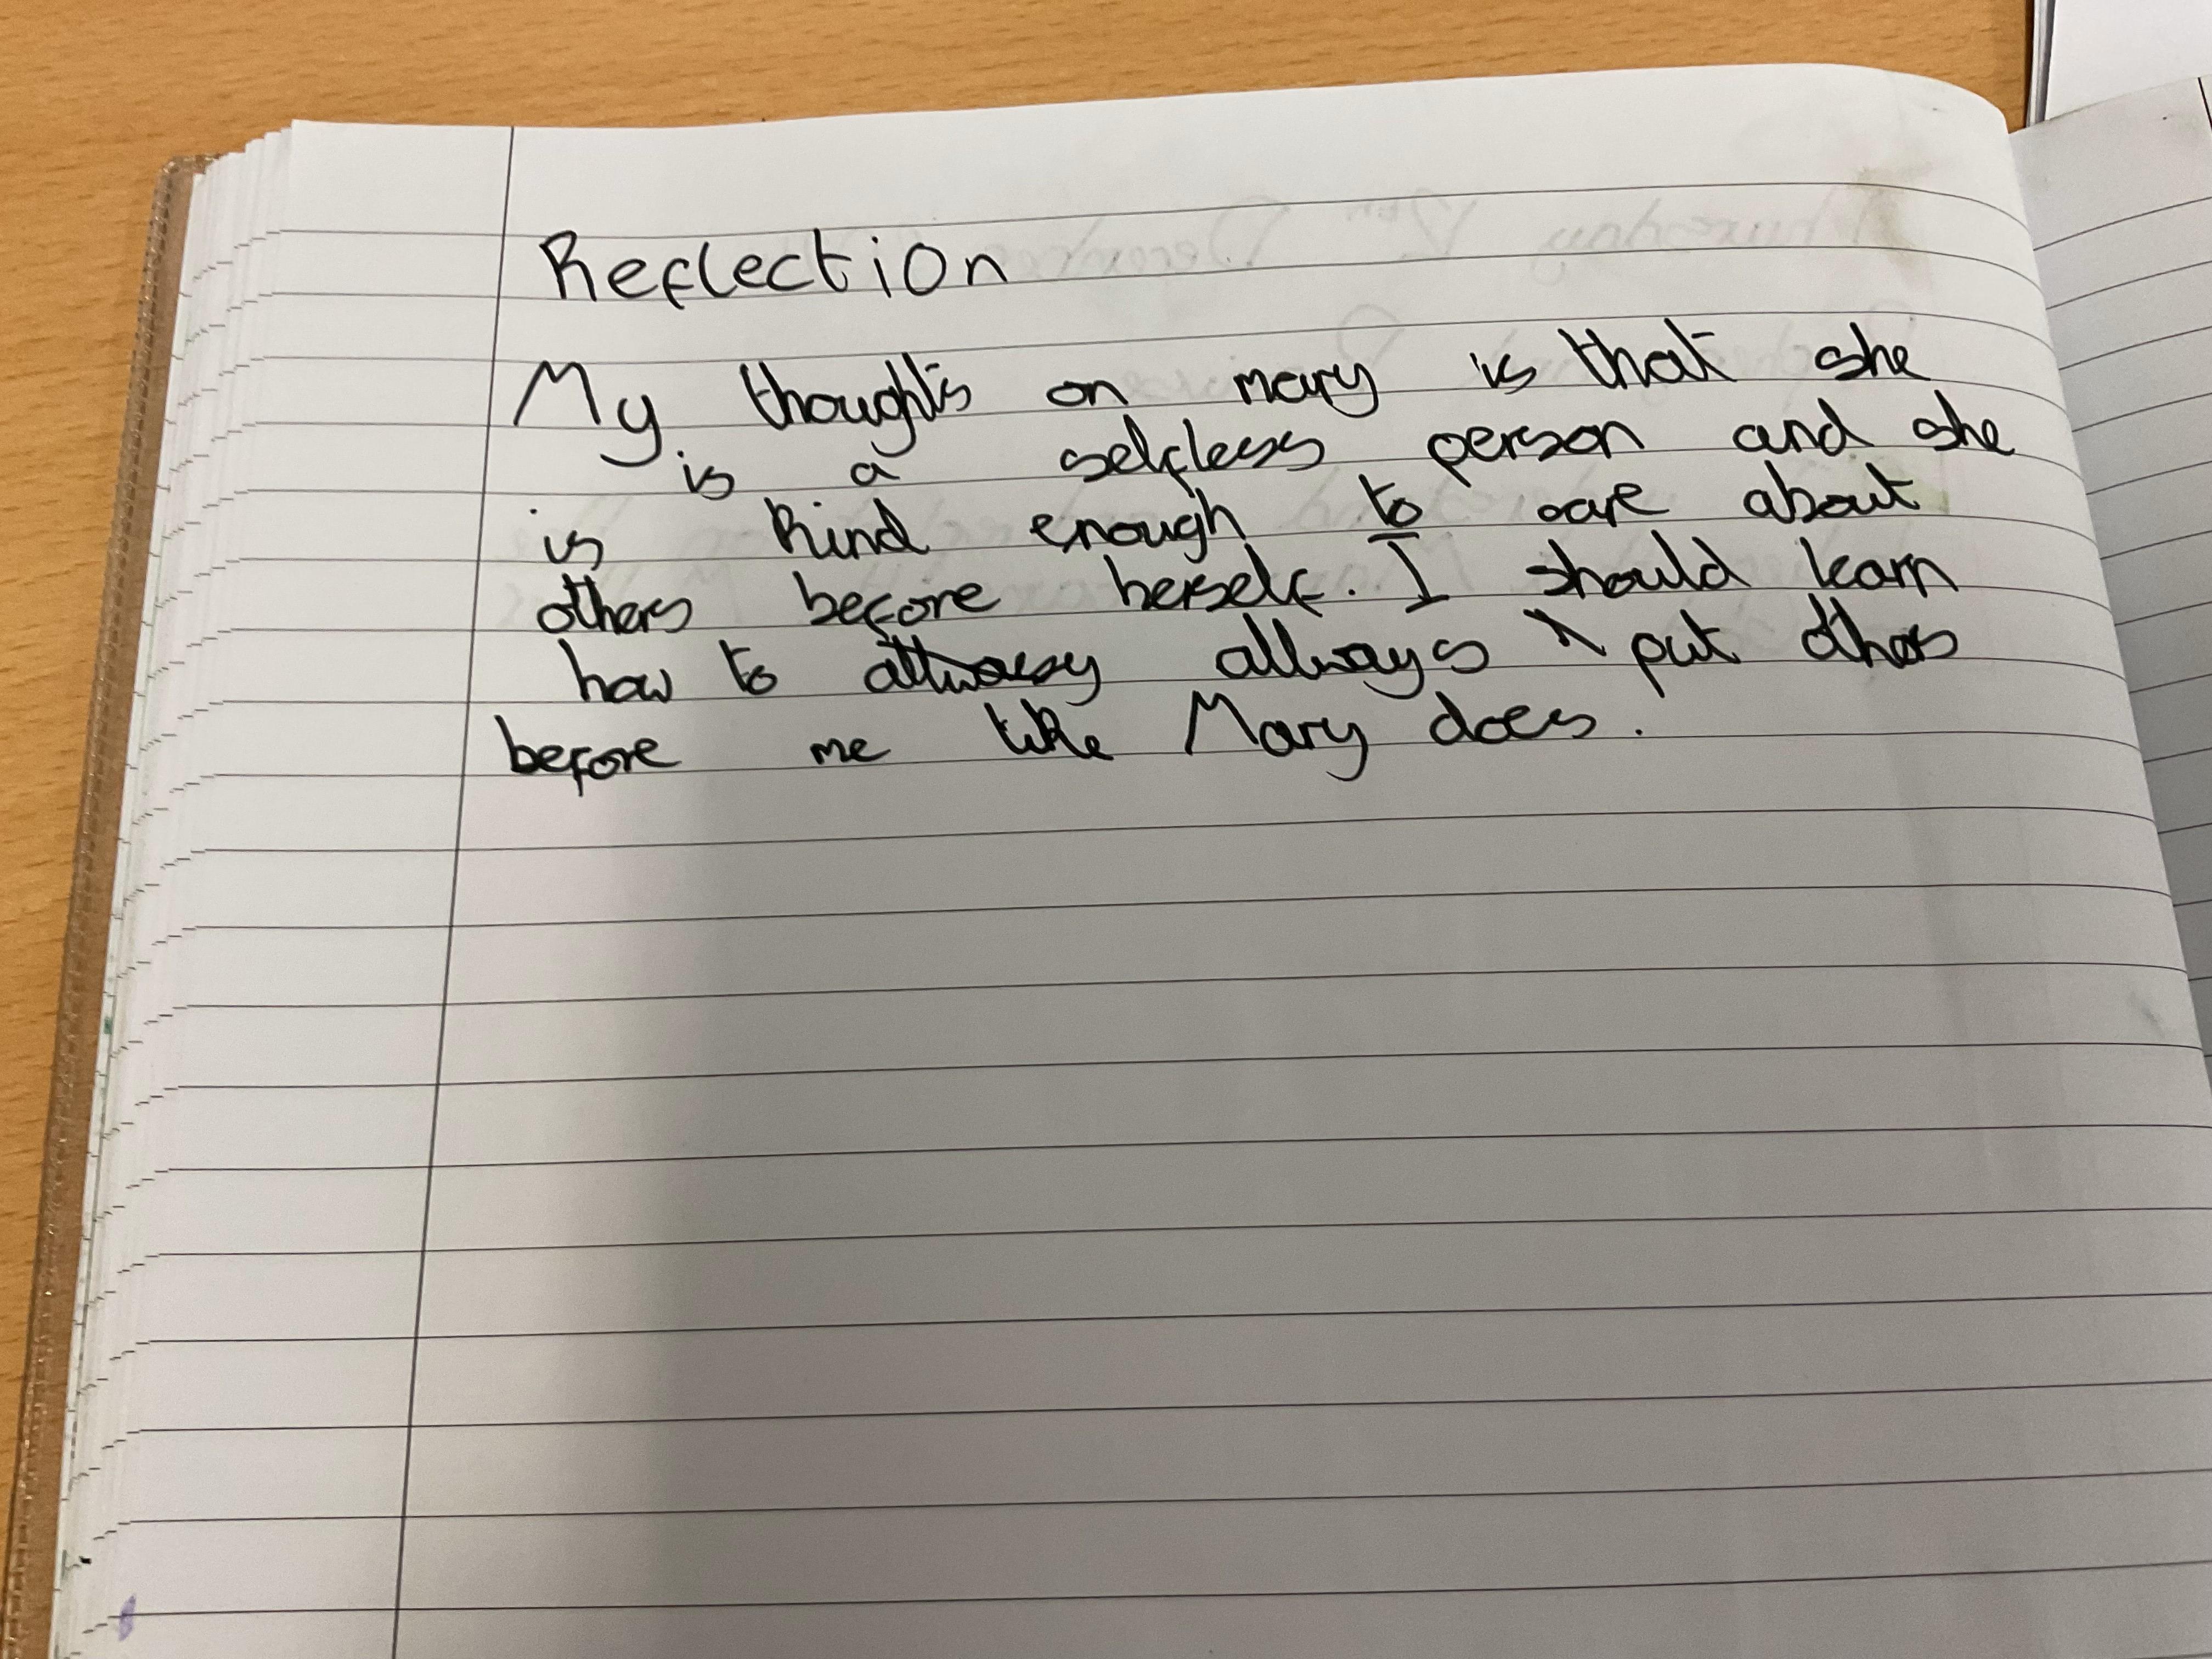 Reflection
My thoughts on mary is that she
is a selfless person and she
is kind enough to care about
others before herself. I should learn
how to allways put others
before me like Mary does.